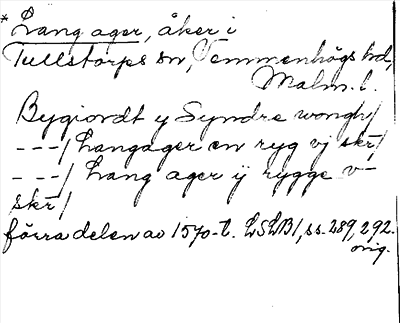 * Lang ager, åker i
Tullstorps sn, Vemmenhögs hd,
Malm. l.
Bygiordt y Syndre wongh/
---/ Langager en ryg vj skr/
---/ Lang ager ij rygge v-
skr/
förra delen av 1570-t. LSLB1, ss. 289, 292.
orig.